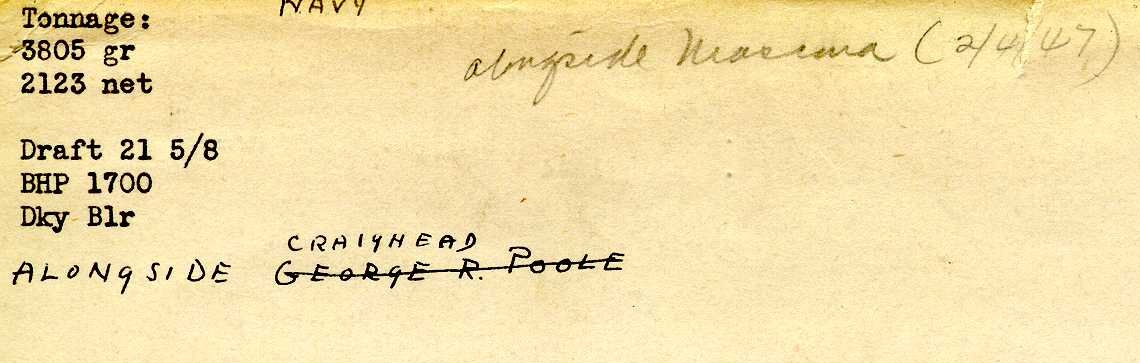 NAVY
Tonnage:
3805 gr
2123 net
alongside Massena (2/4/47)
Draft 21 5/8
BHP 1700
Dky Blr
CRAIGHEAD
ALONGSIDE GEORGE R. POOLE